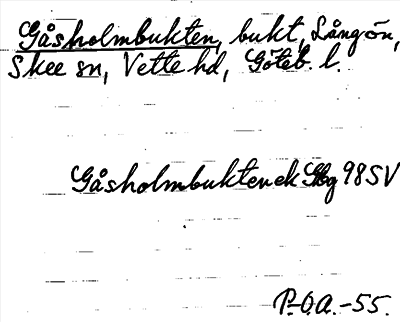 Gåsholmbukten, bukt, Långön,
Skee sn, Vette hd, Göteb. l.
Gåsholmbukten ek Gbg 98SV
P.O.A.-55.